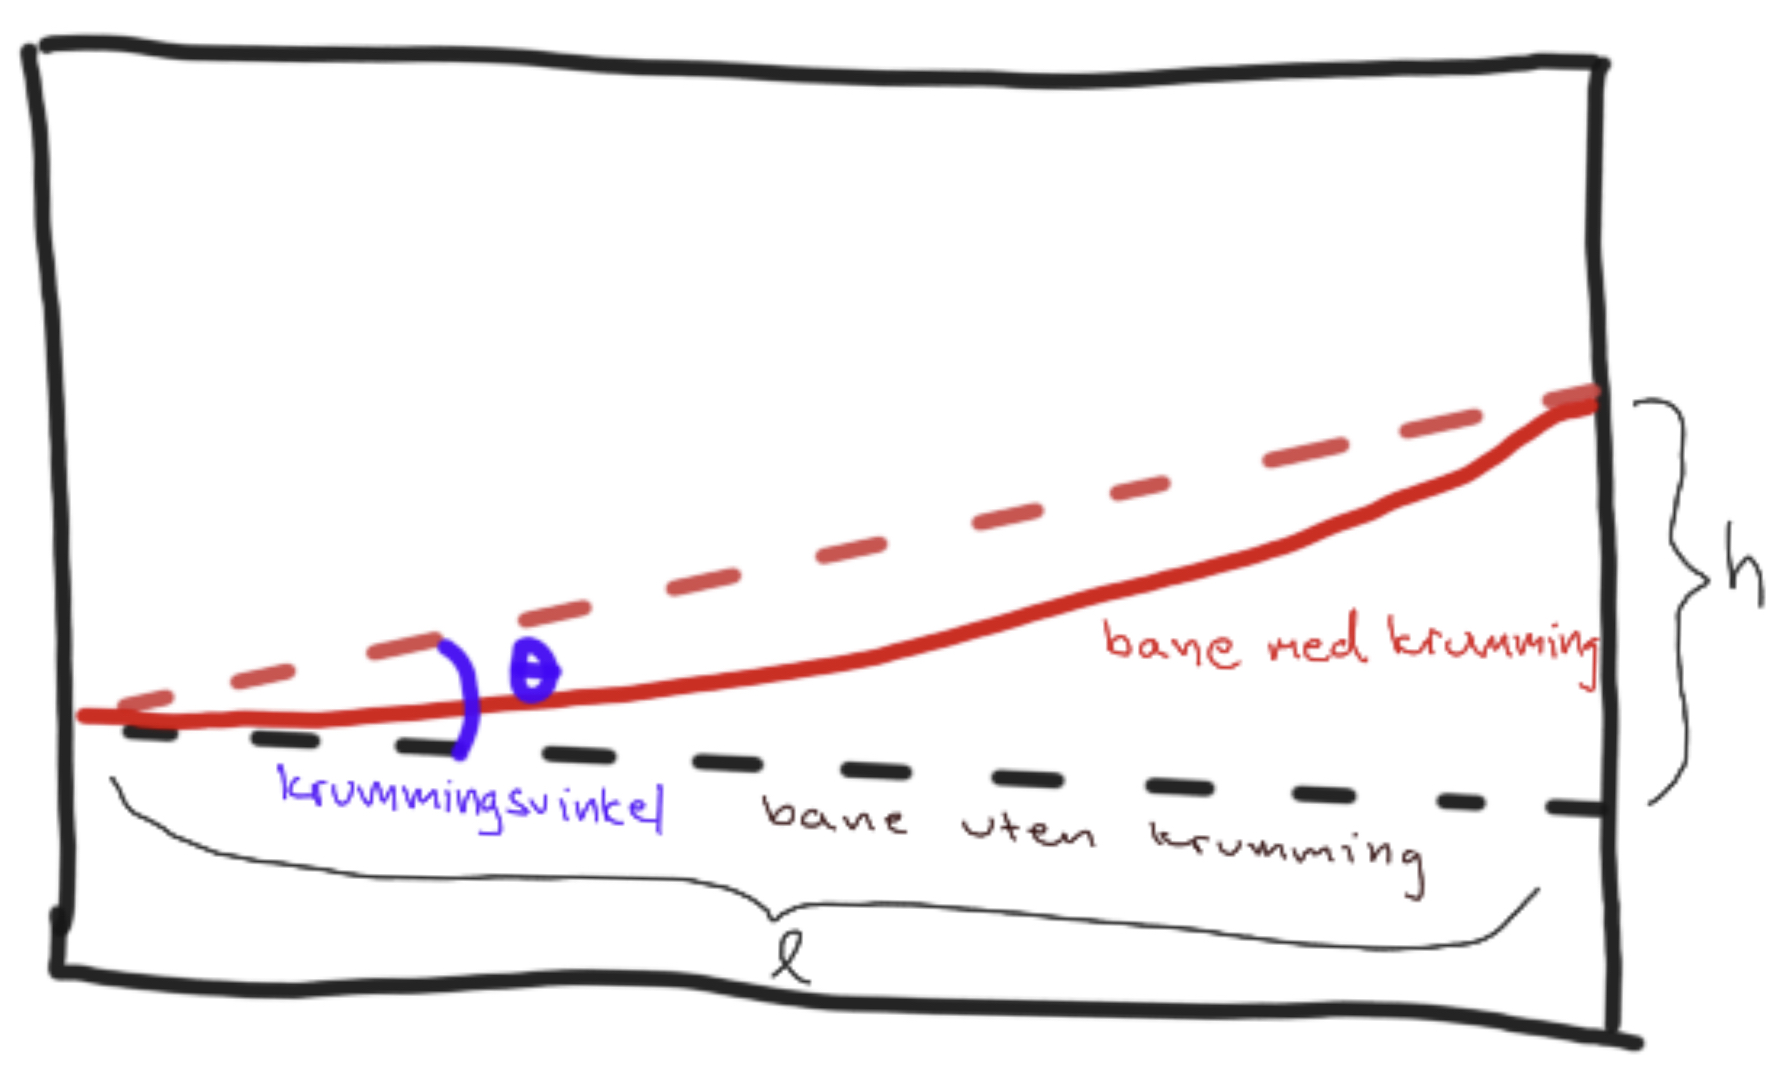 h
θ
bane med krumming
krummingsvinkel
bane uten krumming
l